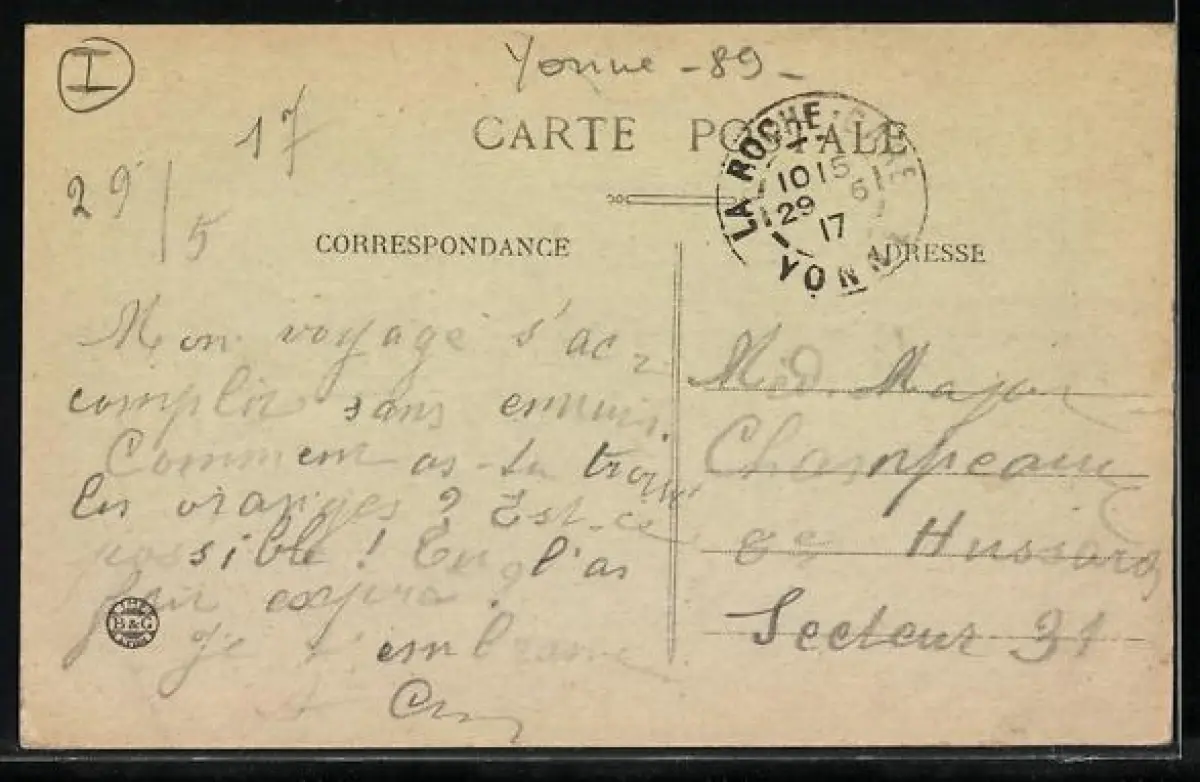 I
Yonne - 89 -
17
29/5
CARTE POSTALE
LA ROCHE GARE
10 15
29 5
17
YONNE
CORRESPONDANCE
ADRESSE
Mon voyage s'ac-
complit sans ennuis.
Comment as-tu trouvé
les oranges ? Est-ce
possible ! Tu l'as
fait exprès.
Je t'embrasse
B&G
Méd. Major
Champeaux
8e Hussards
Secteur 31